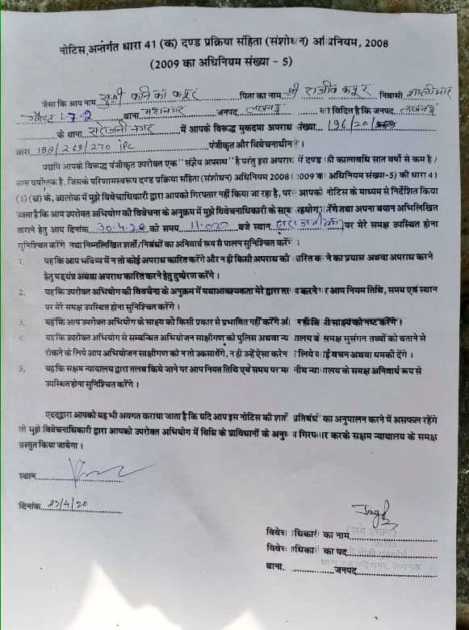 नोटिस अन्तर्गत धारा 41 (क) दण्ड प्रक्रिया संहिता (संशोधन) अधिनियम, 2008
(2009 का अधिनियम संख्या - 5)
जैसा कि आप नाम सुश्री कनिका कपूर पिता का नाम श्री राजीव कपूर निवासी शालीमार
थाना महानगर जनपद लखनऊ को विदित है कि जनपद लखनऊ
के थाना सरोजनी नगर में आपके विरूद्ध मुकदमा अपराध संख्या 196/20
धारा 188/269/270 IPC पंजीकृत और विवेचनाधीन है।
यद्यपि आपके विरूद्ध पंजीकृत उपरोक्त एक "संज्ञेय अपराध" है परंतु इस अपराध में दण्ड की कालावधि सात वर्षो से कम है /
सात वर्ष तक है, जिसके परिणामस्वरूप दण्ड प्रक्रिया संहिता (संशोधन) अधिनियम 2008 (2009 का अधिनियम संख्या-5) की धारा 41
(1) (ख) के, आलोक में मुझे विवेचाधिकारी द्वारा आपको गिरफ्तार नहीं किया जा रहा है, आपको नोटिस के माध्यम से निर्देशित किया
जाता है कि आप उपरोक्त अभियोग की विवेचना के अनुक्रम में मुझे विवेचनाधिकारी के साथ सहयोग करेंगे तथा अपना बयान अभिलिखित
कराने हेतु आप दिनांक 30.4.20 को समय 11.00 बजे स्थान पर मेरे समक्ष उपस्थित होना
सुनिश्चित करेंगे तथा निम्नलिखित शर्तो/निबंधों का अनिवार्य रूप से पालन सुनिश्चित करेंगे।
1. यह कि आप भविष्य में न तो कोई अपराध कारित करेंगे और न ही किसी अपराध को कारित करने का प्रयास अथवा अपराध कारने
हेतु षड्यंत्र अथवा अपराध कारित करने हेतु दुष्प्रेरण करेंगे।
2. यह कि उपरोक्त अभियोग की विवेचना के अनुक्रम में यथाआवश्यकता मेरे द्वारा करने पर आप नियम तिथि, समय एवं स्थान
पर मेरे समक्ष उपस्थित होना सुनिश्चित करेंगे।
3. यह कि आप उपरोक्त अभियोग के साक्ष्य को किसी प्रकार से प्रभावित नहीं करेंगे और न ही किसी साक्ष्य को नष्ट करेंगे।
4. यह कि उपरोक्त अभियोग से सम्बन्धित अभियोजन साक्षीगण को पुलिस अथवा न्यायालय के समक्ष मुसंगन तथ्यों को बताने से
रोकने के लिये आप अभियोजन साक्षीगण को न तो उकसायेंगे, न ही उन्हें ऐसा करने के लिये कोई वचन अथवा धमकी देंगे।
5. यह कि सक्षम न्यायालय द्वारा तलब किये जाने पर आप नियत तिथि एवं समय पर माननीय न्यायालय के समक्ष अनिवार्य रूप से
उपस्थित होना सुनिश्चित करेंगे।
एतद्द्वारा आपको यह भी अवगत कराया जाता है कि यदि आप इस नोटिस की शर्तो प्रतिबंधों का अनुपालन करने में असफल रहेंगे
तो मुझे विवेचनाधिकारी द्वारा आपको उपरोक्त अभियोग में विधि के प्राविधानों के अनुरूप गिरफ्तार करके सक्षम न्यायालय के समक्ष
प्रस्तुत किया जायेगा।
स्थान
दिनांक
विवेचनाधिकारी का नाम
विवेचनाधिकारी का पद
थाना जनपद